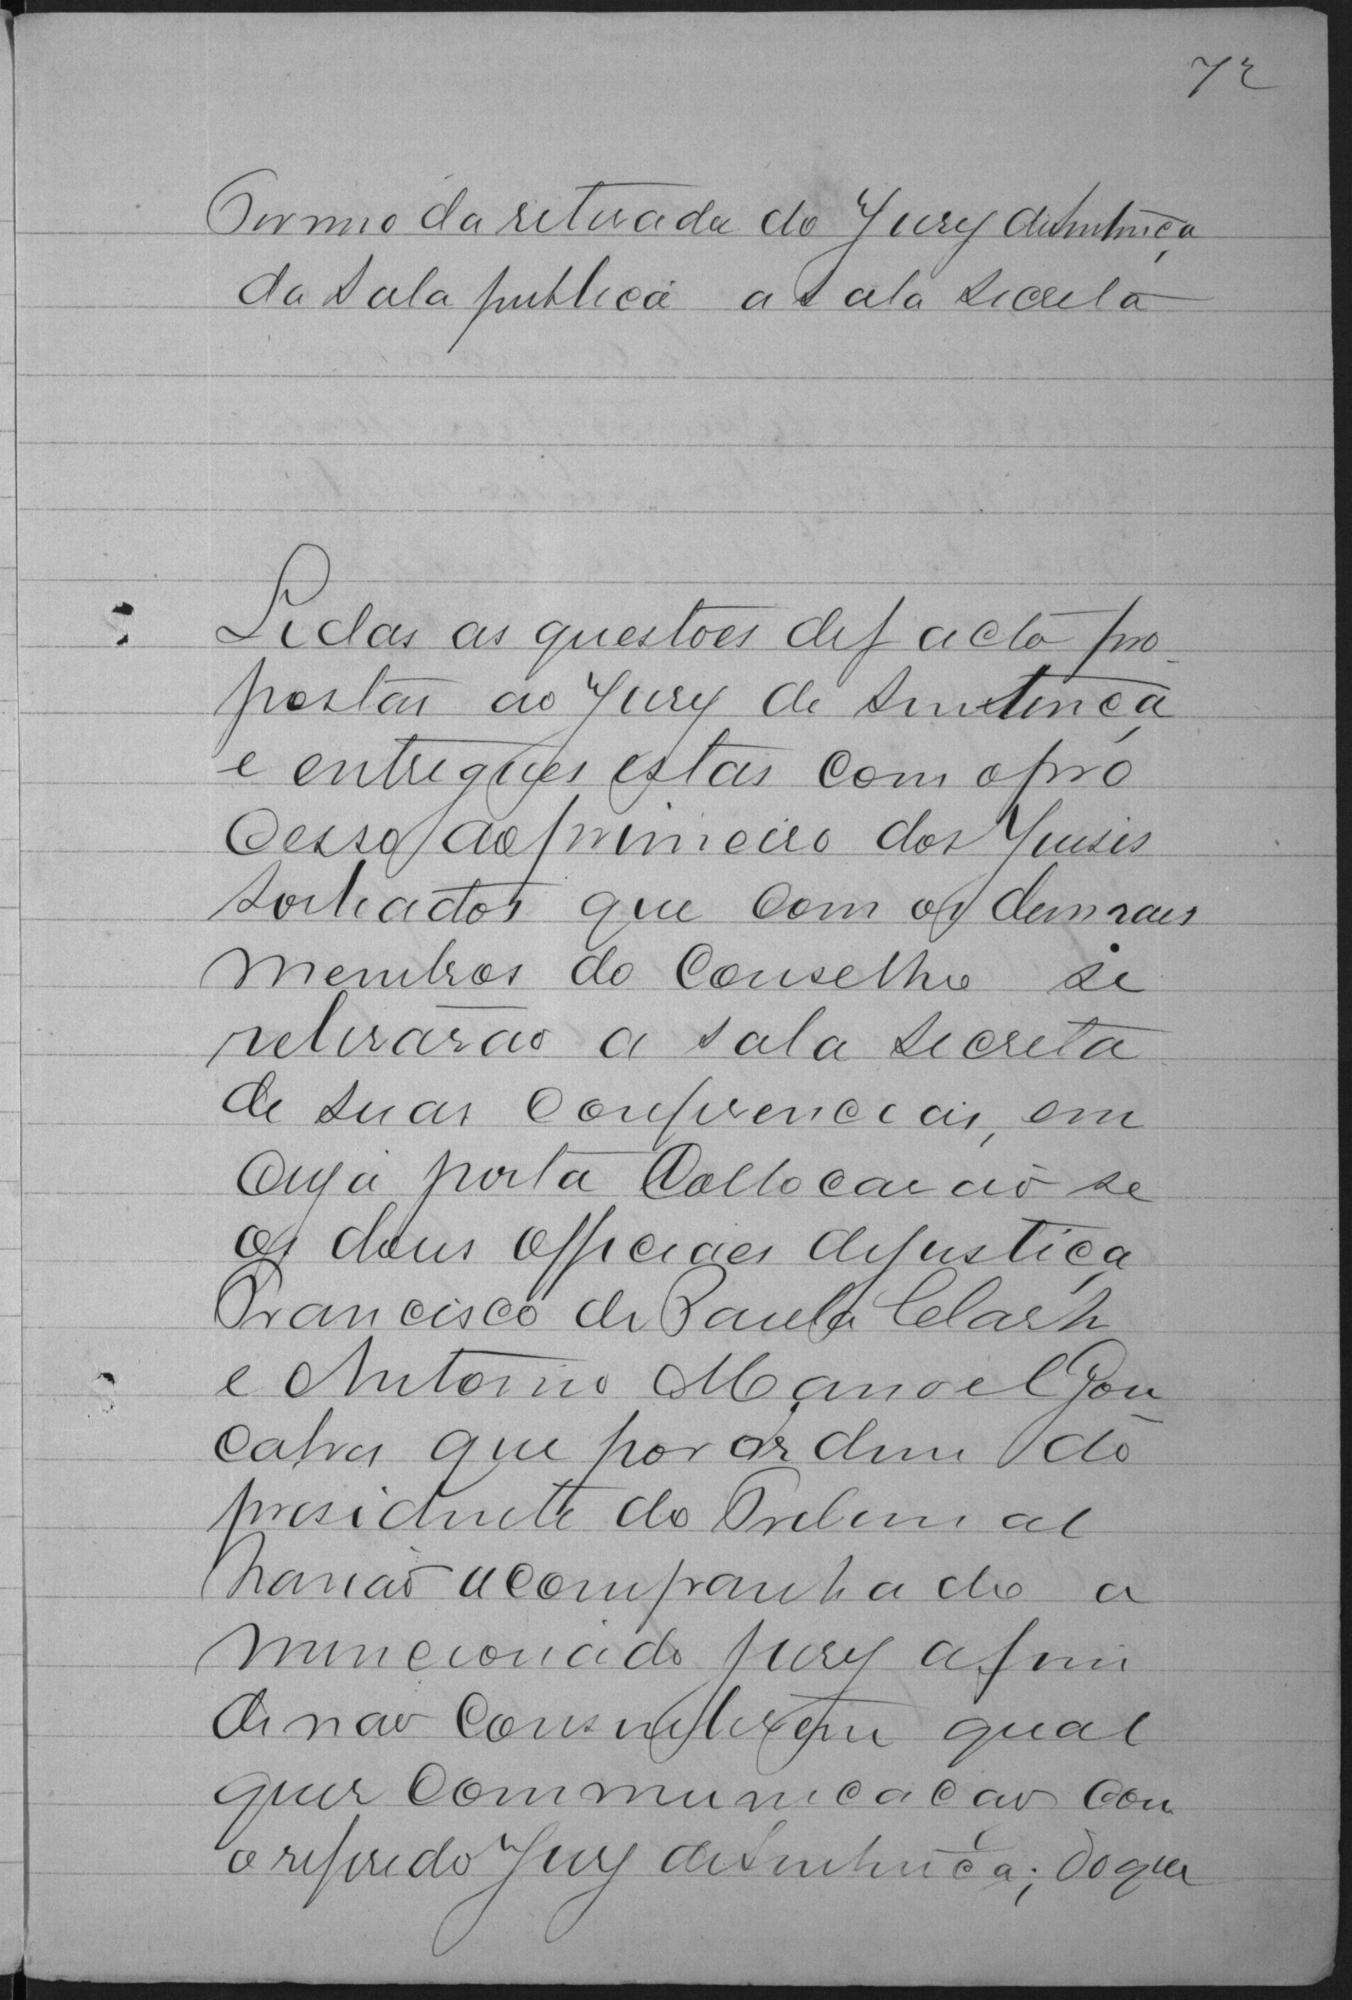 72
Termo da retirada do Jury de sentença
da sala publica a sala secreta
Lidas as questões de facto pro-
postas ao Jury de Sentença
e entregues estas com o pro
cesso ao primeiro dos Juises
sorteados que com os demais
membros do Conselho se
retirarão a sala secreta
de suas conferencias, em
cuja porta collocarão se
os dous officiaes de justiça
Francisco de Paula Clark
e Antonio Manoel Gon
çalves que por ordem do
presidente do Tribunal
haviaõ acompanhado a
mencionado jury afim
de não consentirem qual
quer communicação com
o referido Jury de sentença; do que